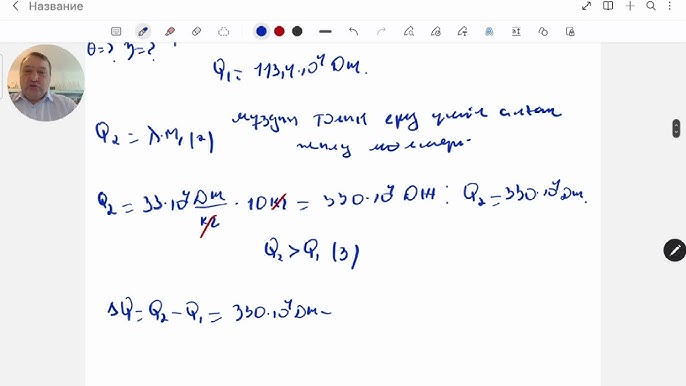 Название
θ=? η=?
Q₁ = 113,4·10⁴ Дж.
Q₂ = λ·m₁ (2) мұздың толық еру үшін алған
жылу мөлшері
Q₂ = 33·10⁴ Дж/кг · 10 кг = 330·10⁴ Дж : Q₂ = 330·10⁴ Дж.
Q₂ > Q₁ (3)
ΔQ = Q₂ − Q₁ = 330·10⁴ Дж −